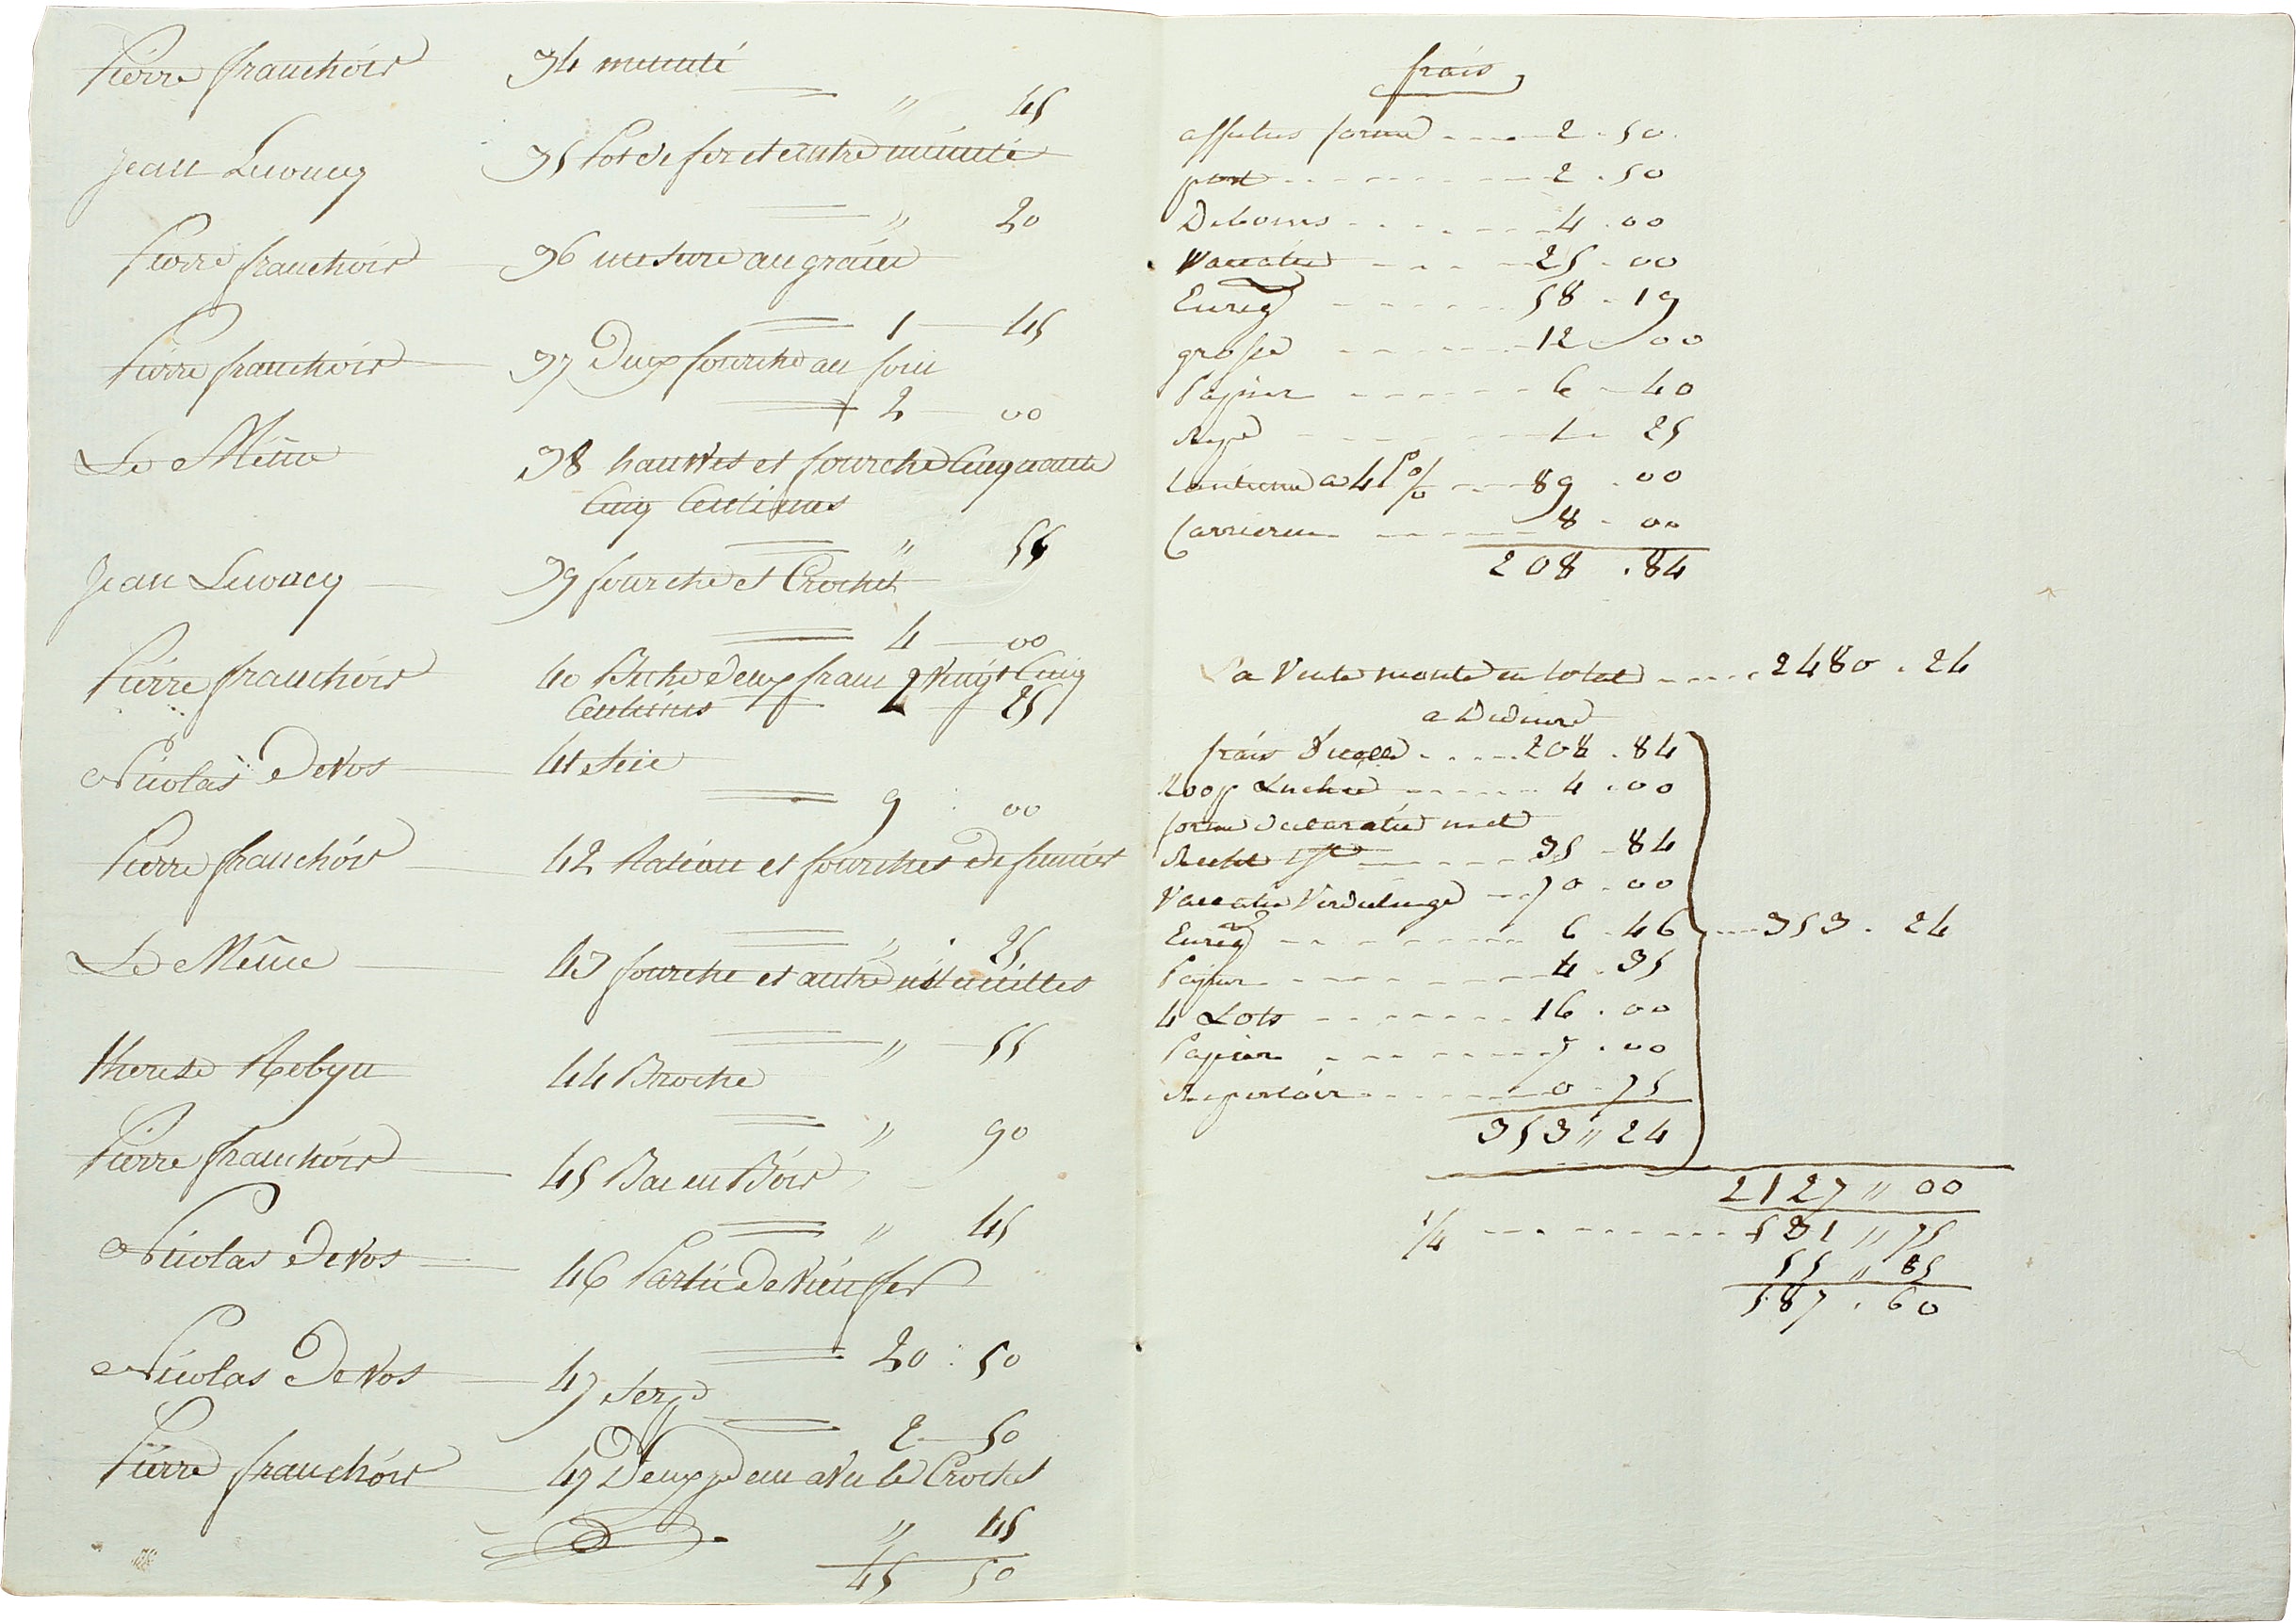 Pierre franchois 34 menuté
" 45
Jean Levoncq 35 Pot de fer et autre menuté
" 20
Pierre franchois 36 mesure au grain
1 — 45
Pierre franchois 37 Deux fourche au foin
2 — 00
Le Même 38 hauwes et fourche Cinquante
Cinq Centimes
" 55
Jean Levoncq 39 fourche et Crochet
4 — 00
Pierre franchois 40 Beche deux franc Vingt Cinq
Centimes 2 — 25
Nicolas De Vos 41 Scie
9 : 00
Pierre franchois 42 Rateau et fourches de fumier
" 25
Le Même 43 fourche et autre ustensilles
" — 55
Therese Robyn 44 Broche
" 90
Pierre franchois 45 Bac en Bois
" 45
Nicolas De Vos 46 Partie de Vieu fer
20 : 50
Nicolas De Vos 47 Serpe
2 — 50
Pierre franchois 47 Deux avec le Crochet
" 45
45 50
frais
affiches forme - - - 2 . 50
port - - - 2 . 50
Debours - - - 4 . 00
Vacatie - - - 25 . 00
Enreg - - - 58 . 19
grosse - - - 12 - 00
Papier - - - 6 - 40
Repe - - - 1 - 25
tantieme a 4 P% - - 89 . 00
Carrieren - - - 8 . 00
208 . 84
La Vente monte en total - - - 2480 . 24
a Deduire
frais d'icelle - - - 208 . 84
Loop - - - 4 . 00
forme declaratie met
Recht - - - 35 - 84
Vacatie Verdeelinge - - 70 . 00
Enreg - - - 6 . 46 - - - 353 . 24
Papier - - - 4 . 35
4 Lots - - - 16 . 00
Papier - - - 7 . 00
Repertoir - - - 0 - 75
353 " 24
2127 " 00
1/4 - - - 531 " 75
55 " 85
587 . 60